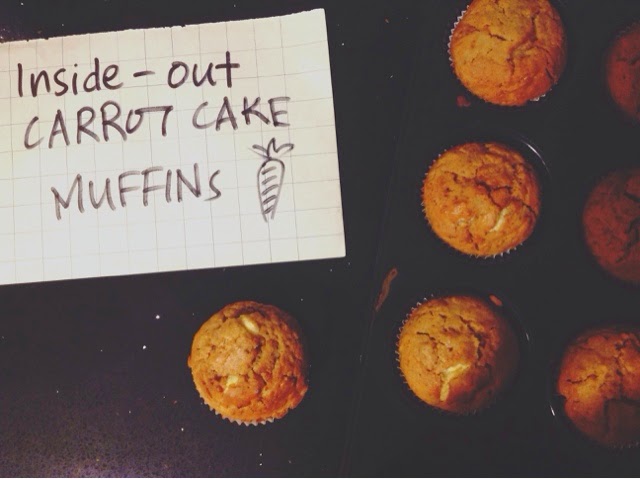 Inside-out
CARROT CAKE
MUFFINS